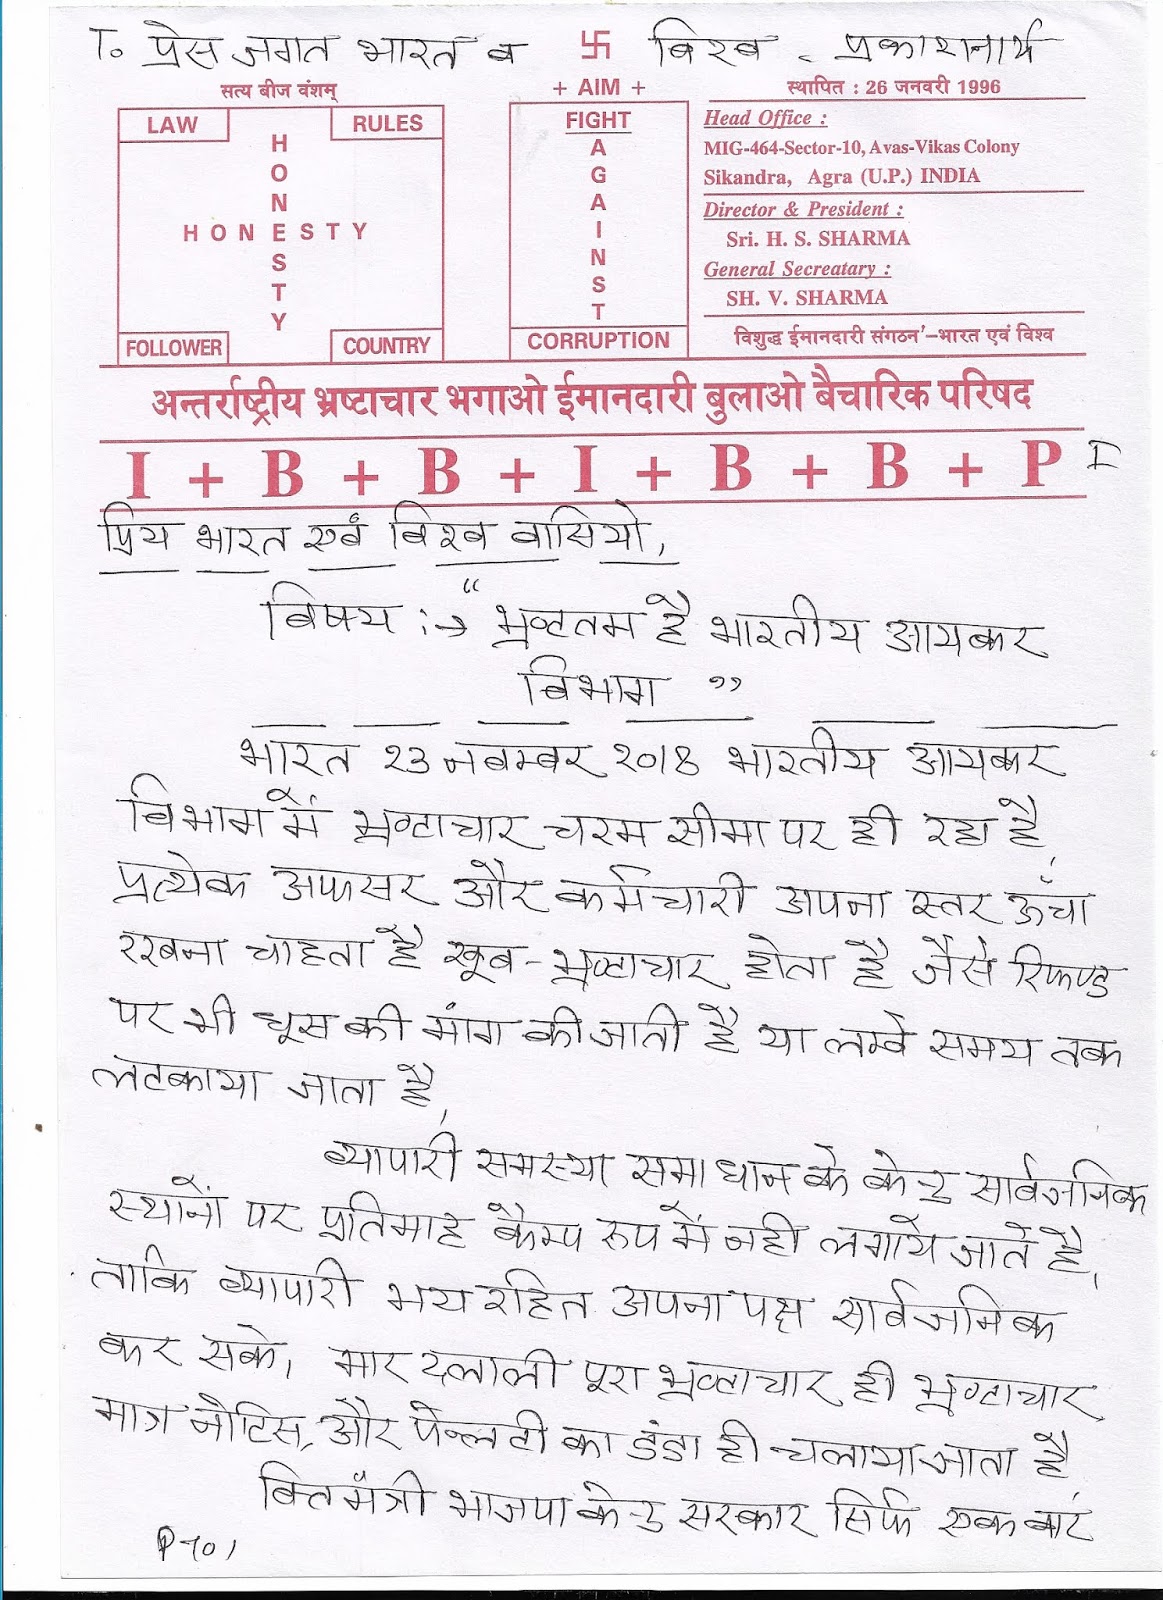 To प्रेस जगत भारत व 卐 विश्व - प्रकाशनार्थ
सत्य बीज वंशम्
LAW
RULES
HONESTY
HONESTY
FOLLOWER
COUNTRY
+ AIM +
FIGHT
AGAINST
CORRUPTION
स्थापित : 26 जनवरी 1996
Head Office :
MIG-464-Sector-10, Avas-Vikas Colony
Sikandra, Agra (U.P.) INDIA
Director & President :
Sri. H. S. SHARMA
General Secreatary :
SH. V. SHARMA
विशुद्ध ईमानदारी संगठन'-भारत एवं विश्व
अन्तर्राष्ट्रीय भ्रष्टाचार भगाओ ईमानदारी बुलाओ बैचारिक परिषद
I + B + B + I + B + B + P I
प्रिय भारत एवं विश्व वासियो,
विषय :→ "भ्रष्टतम है भारतीय आयकर
विभाग "
भारत २३ नवम्बर २०१८ भारतीय आयकर
विभाग में भ्रष्टाचार चरम सीमा पर ही रहा है,
प्रत्येक अफसर और कर्मचारी अपना स्तर ऊँचा
रखना चाहता है खूब-भ्रष्टाचार होता है जैसे रिफण्ड
पर भी घूस की मांग की जाती है या लम्बे समय तक
लटकाया जाता है,
व्यापारी समस्या समाधान के केन्द्र सार्वजनिक
स्थानों पर प्रतिमाह कैम्प रूप में नही लगाये जाते है,
ताकि व्यापारी भय रहित अपना पक्ष सार्वजनिक
कर सके, मार दलाली पूरा भ्रष्टाचार ही भ्रष्टाचार
मात्र नोटिस, और पेन्लटी का डंडा ही चलाया जाता है
वित्तमंत्री भाजपा केन्द्र सरकार सिर्फ एक बार